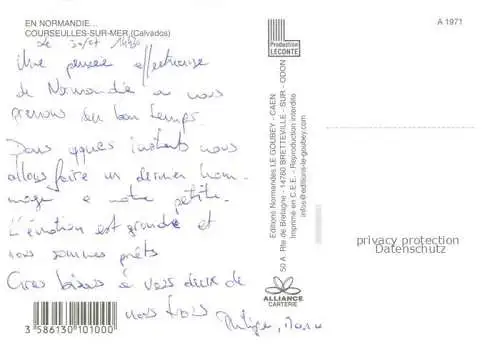 EN NORMANDIE...
COURSEULLES-SUR-MER (Calvados)
Le 30/07 14h30
Une pensée affectueuse
de Normandie où nous
prenons du bon temps.
Dans qques instants nous
allons faire un dernier hom-
mage à notre petite.
L'émotion est grande et
nous sommes prêts
Gros bisous à vous deux de
nous trois
Philippe,
3 586130 101000
Production
LECONTE
Editions Normandes LE GOUBEY - CAEN
50 A - Rte de Bretagne - 14760 BRETTEVILLE - SUR - ODON
Imprimé en C.E.E. - Reproduction interdite
infos@editions-le-goubey.com
ALLIANCE
CARTERIE
A 1971
privacy protection
Datenschutz